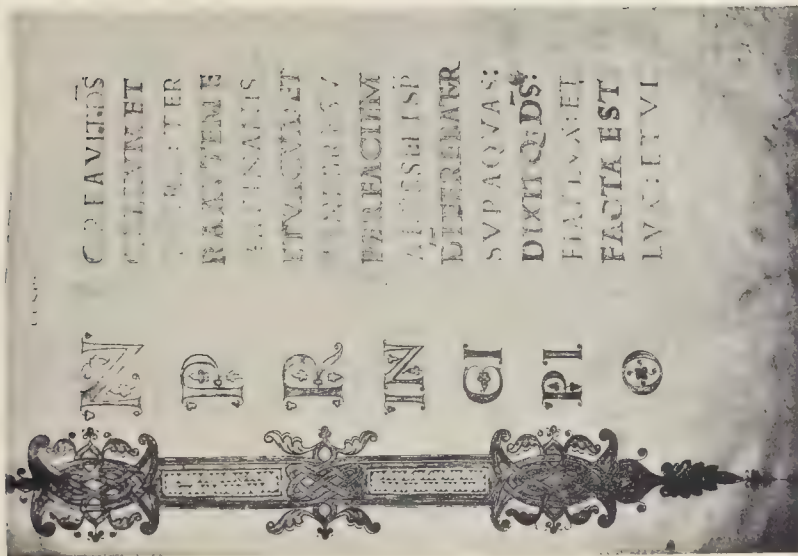 IN
P
R
IN
CI
PI
O
CREAVIT D̄S
ET
TER
RA AVTEM E
INANIS
ET VACVA ET
PER FACIEM
ET SP
D̄I FEREBATVR
SVP AQVAS:
DIXIT Q D̄S:
FIAT LVX ET
FACTA EST
LVX ET VI